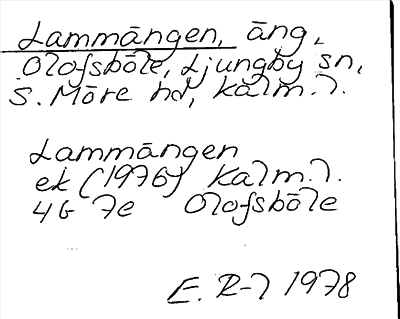 Lammängen, äng,
Olofsböle, Ljungby sn,
S. Möre hd, Kalm. l.
Lammängen
ek (1976) Kalm. l.
4G 7e Olofsböle
E. R-l 1978